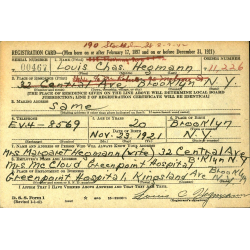 REGISTRATION CARD—(Men born on or after February 17, 1897 and on or before December 31, 1921)
SERIAL NUMBER 1. NAME (Print) ORDER NUMBER
Louis Chas. Hegmann 11,226
2. PLACE OF RESIDENCE (Print)
32 Central Ave Brooklyn N.Y.
[THE PLACE OF RESIDENCE GIVEN ON THE LINE ABOVE WILL DETERMINE LOCAL BOARD
JURISDICTION; LINE 2 OF REGISTRATION CERTIFICATE WILL BE IDENTICAL]
3. MAILING ADDRESS
Same
4. TELEPHONE 5. AGE IN YEARS 6. PLACE OF BIRTH
EV4-8569 20 Brooklyn
DATE OF BIRTH
Nov. 1921 N.Y.
7. NAME AND ADDRESS OF PERSON WHO WILL ALWAYS KNOW YOUR ADDRESS
Mrs Margaret Hegmann (wife) 32 Central Ave
8. EMPLOYER'S NAME AND ADDRESS B'klyn N.Y.
Mrs Mc Cloud Greenpoint Hospital
9. PLACE OF EMPLOYMENT OR BUSINESS
Greenpoint Hospital, Kingsland Ave Brooklyn N.Y.
I AFFIRM THAT I HAVE VERIFIED ABOVE ANSWERS AND THAT THEY ARE TRUE.
D. S. S. Form 1
Louis C. Hegmann